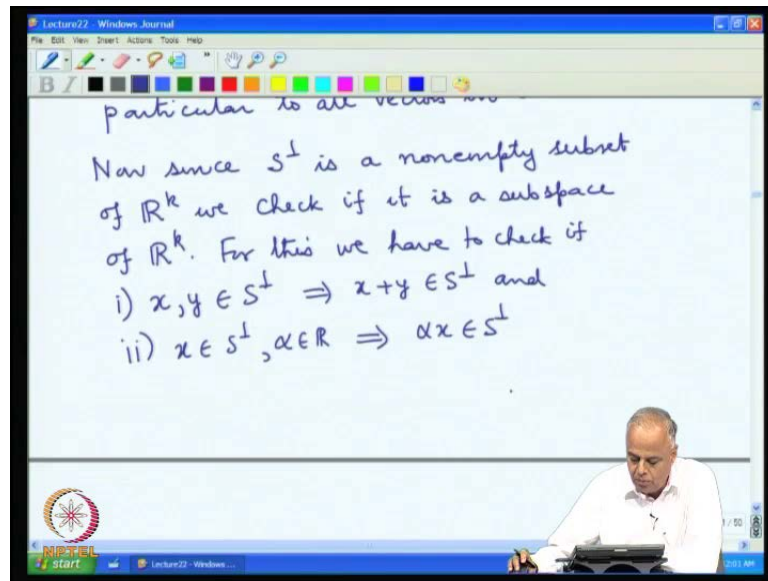 Lecture22 - Windows Journal
File Edit View Insert Actions Tools Help
B I
particular to all vectors in
Now since S⊥ is a nonempty subset
of ℝᵏ we check if it is a subspace
of ℝᵏ. For this we have to check if
i) x, y ∈ S⊥ ⇒ x+y ∈ S⊥ and
ii) x ∈ S⊥, α ∈ ℝ ⇒ αx ∈ S⊥
/ 50
NPTEL
start Lecture22 - Windows ...
2:01 AM